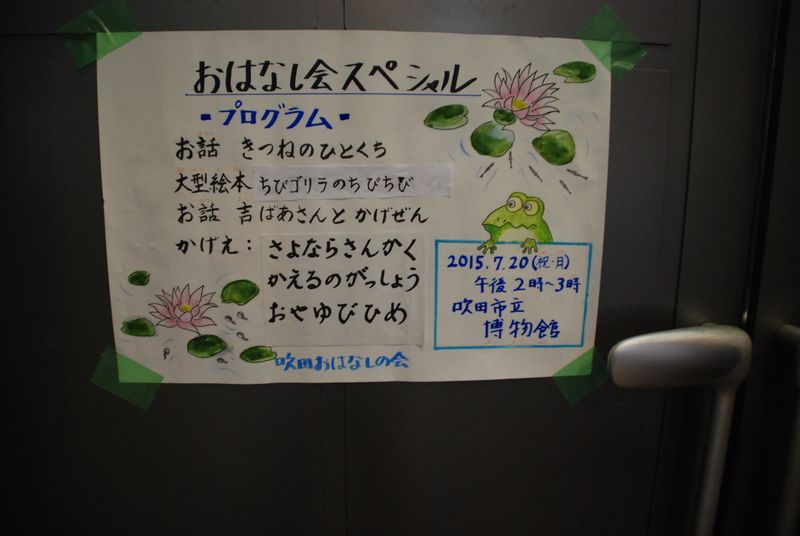 おはなし会スペシャル
-プログラム-
お話 きつねのひとくち
大型絵本 ちびゴリラのちびちび
お話 吉ばあさんと かげぜん
かげえ: さよならさんかく
かえるのがっしょう
おやゆびひめ
2015.7.20(祝・月)
午後 2時~3時
吹田市立
博物館
吹田おはなしの会